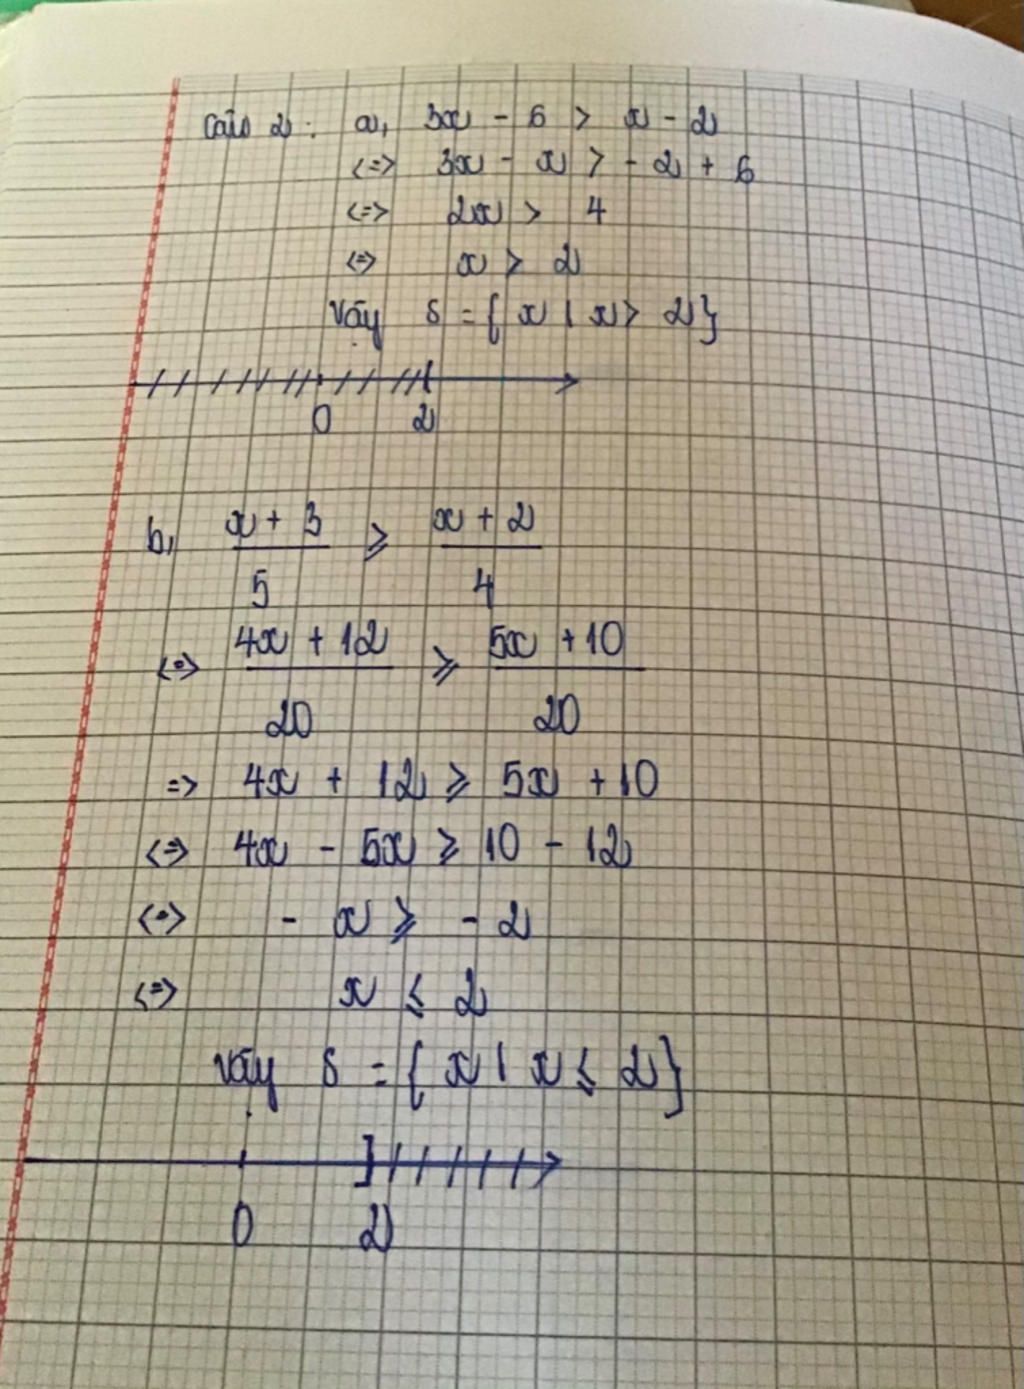 Câu 2: a, 3x - 6 > x - 2
<=> 3x - x > - 2 + 6
<=> 2x > 4
<=> x > 2
Vậy S = { x | x > 2 }
0 2
b, x + 3 / 5 ≥ x + 2 / 4
<=> 4x + 12 / 20 ≥ 5x + 10 / 20
=> 4x + 12 ≥ 5x + 10
<=> 4x - 5x ≥ 10 - 12
<=> - x ≥ - 2
<=> x ≤ 2
Vậy S = { x | x ≤ 2 }
0 2